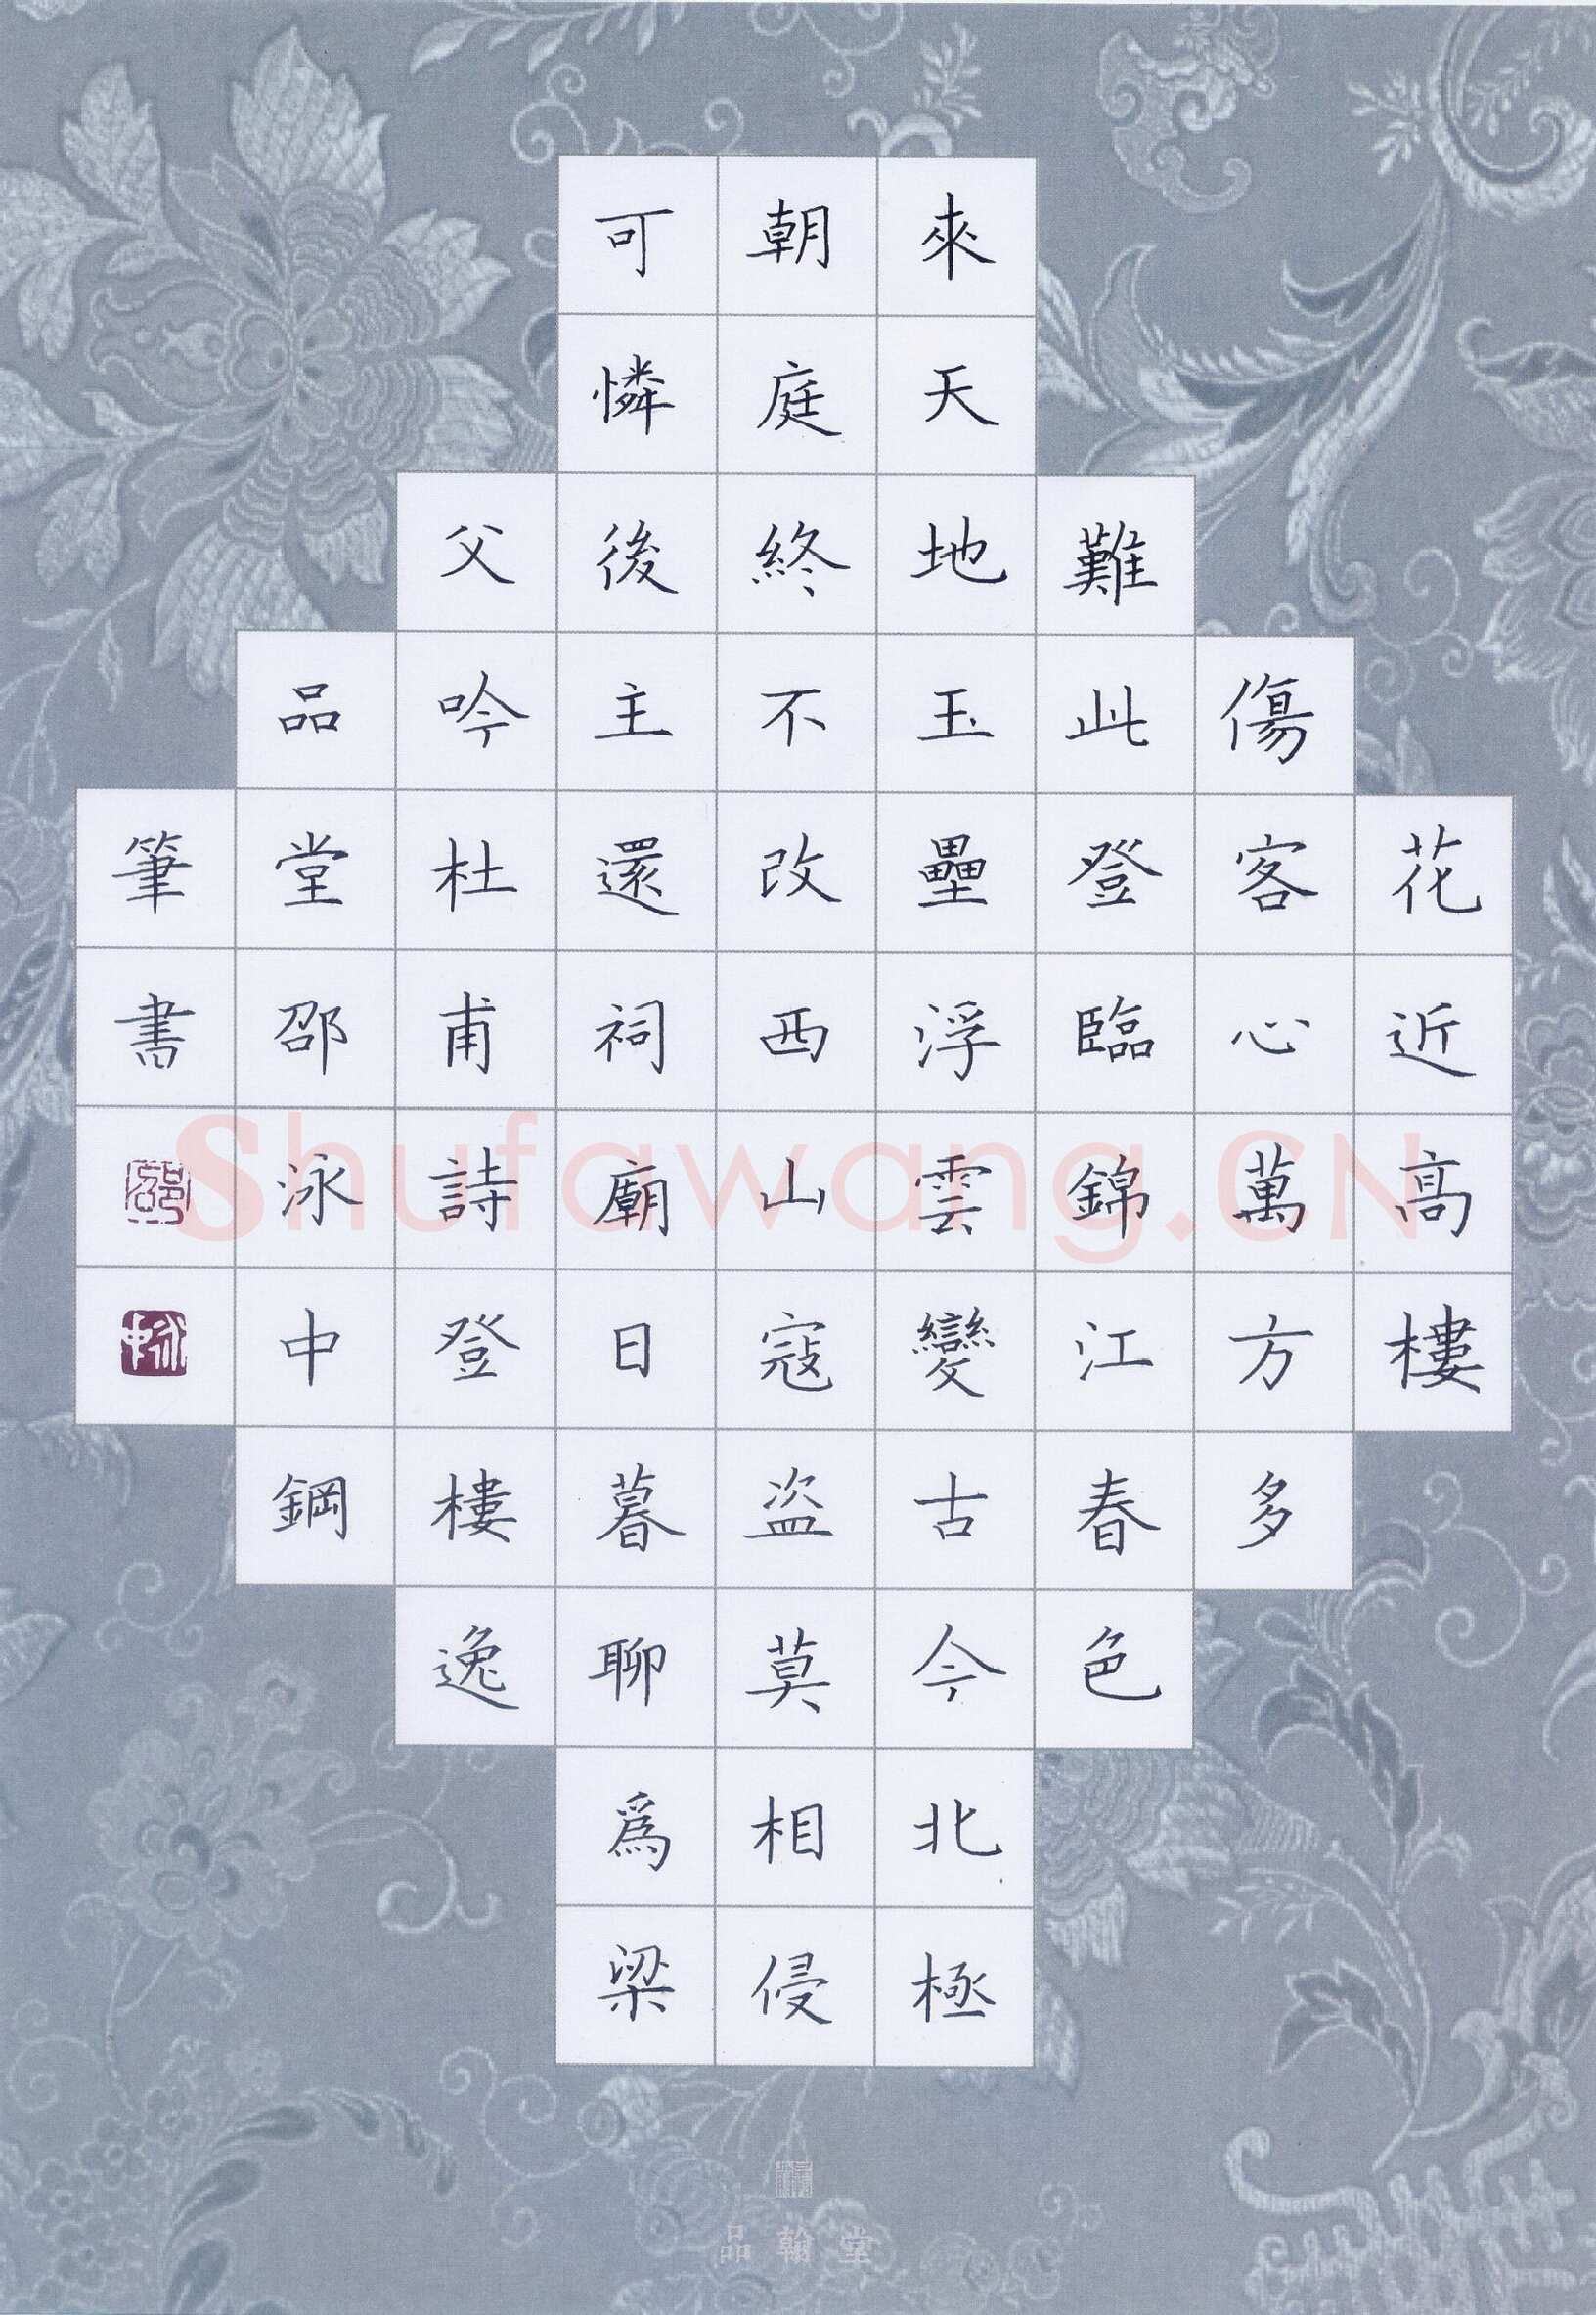 花近高樓
傷客心萬方多
難此登臨錦江春色
來天地玉壘浮雲變古今北極
朝庭終不改西山寇盜莫相侵
可憐後主還祠廟日暮聊爲梁
父吟杜甫詩登樓逸
品堂邵泳中鋼
筆書
Shufawang.CN
品翰堂